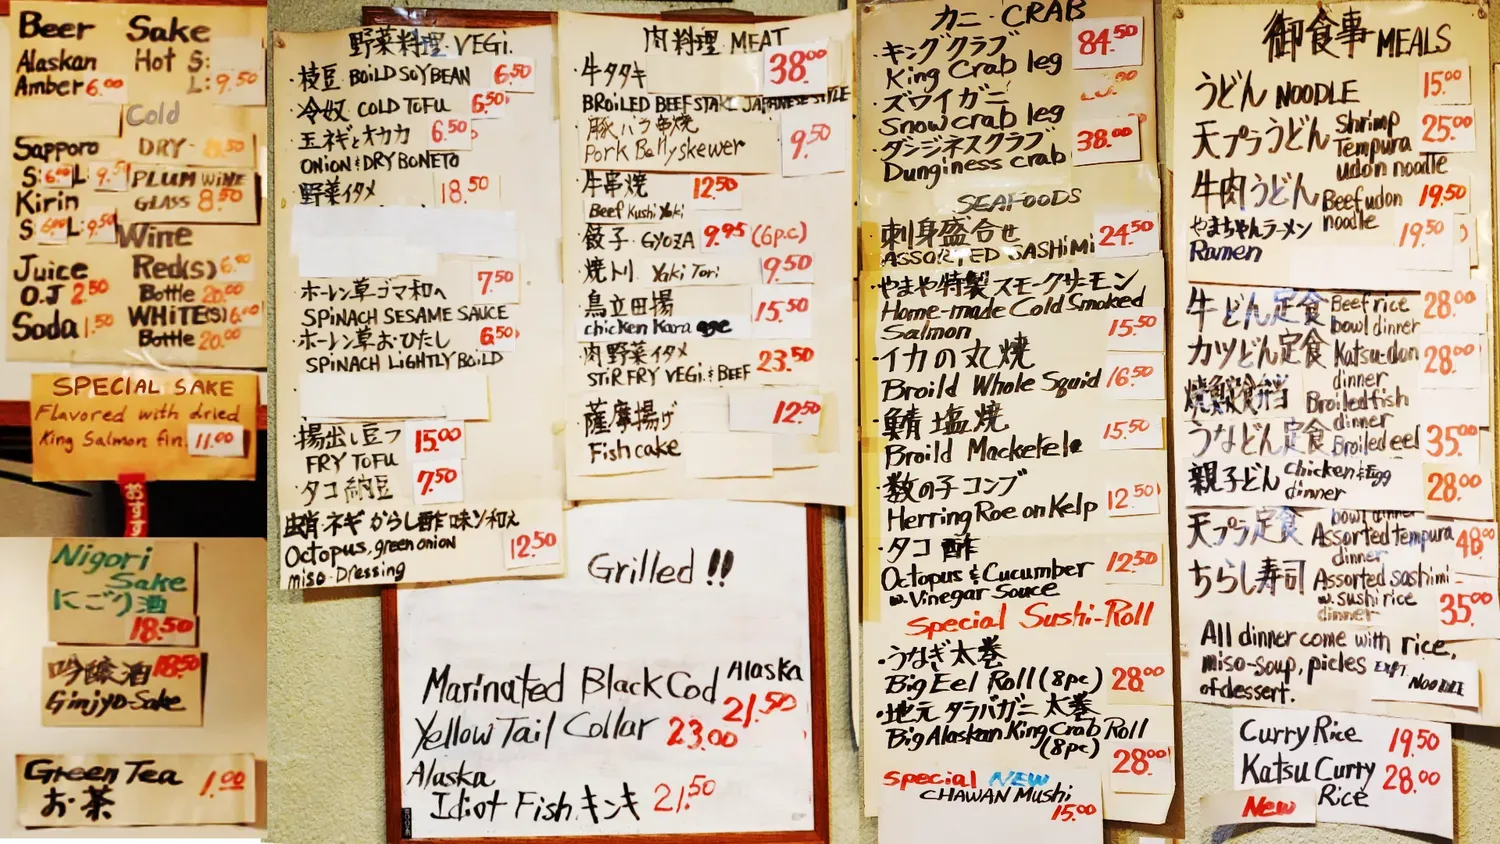 Beer Sake
Alaskan Hot S:
Amber 6.00 L: 9.50
Cold
Sapporo DRY - 8.50
S: 6.00 L: 9.50 PLUM WINE
Kirin GLASS 8.50
S: 6.00 L: 9.50 Wine
Juice Red(s) 6.00
O.J 2.50 Bottle 20.00
Soda 1.50 WHITE(S) 6.00
Bottle 20.00
SPECIAL SAKE
Flavored with dried
King Salmon fin. 11.00
おすす
Nigori
Sake
にごり酒
18.50
吟醸酒 18.50
Ginjyo-Sake
Green Tea 1.00
お茶
野菜料理 VEGi.
・枝豆 BOiLD SOYBEAN 6.50
・冷奴 COLD TOFU 6.50
・玉ネギとオカカ 6.50
ONiON & DRY BONETO
・野菜イタメ 18.50
7.50
・ホーレン草ゴマ和へ
SPiNACH SESAME SAUCE
・ホーレン草おひたし 6.50
SPiNACH LiGHTLY BOiLD
・揚出し豆フ 15.00
FRY TOFU
・タコ納豆 7.50
・蛸ネギからし酢味ソ和え
Octopus, green onion 12.50
miso-Dressing
肉料理 MEAT
・牛タタキ 38.00
BROiLED BEEFSTAKE JAPANESE STYLE
・豚バラ串焼
Pork Bellyskewer 9.50
・牛串焼 12.50
Beef Kushi Yaki
・餃子 GYOZA 9.95 (6p.c)
・焼トリ Yaki Tori 9.50
・鳥立田揚 15.50
chicken Kara age
・肉野菜イタメ 23.50
STiR FRY VEGi. & BEEF
・薩摩揚げ 12.50
Fish cake
Grilled !!
Marinated Black Cod Alaska
21.50
Yellow Tail Collar 23.00
Alaska
Idiot Fish キンキ 21.50
カニ・CRAB
・キングクラブ 84.50
King Crab leg
・ズワイガニ
Snow crab leg
・ダンジネスクラブ 38.00
Dunginess crab
SEAFOODS
・刺身盛合せ 24.50
ASSORTED SASHiMi
・やまや特製スモークサーモン
Home-made Cold Smoked
Salmon 15.50
・イカの丸焼
Broild Whole Squid 16.50
・鯖塩焼 15.50
Broild Mackerele
・数の子コンブ
Herring Roe on Kelp 12.50
・タコ酢
Octopus & Cucumber 12.50
w. Vinegar Souce
Special Sushi-Roll
・うなぎ太巻
Big Eel Roll (8pc) 28.00
・地元タラバガニ太巻
Big Alaskan King Crab Roll
(8pc) 28.00
Special NEW
CHAWAN Mushi
15.00
御食事 MEALS
うどん NOODLE 15.00
天プラうどん Shrimp Tempura udon noodle 25.00
牛肉うどん Beef udon noodle 19.50
やまちゃんラーメン 19.50
Ramen
牛どん定食 Beef rice bowl dinner 28.00
カツどん定食 Katsu-don dinner 28.00
Broiled fish dinner
うなどん定食 Broiled eel 35.00
親子どん chicken & Egg dinner 28.00
bowl dinner
天プラ定食 Assorted tempura dinner 48.00
ちらし寿司 Assorted sashimi w. sushi rice dinner 35.00
All dinner come with rice,
miso-soup, pickles EXPT NOODLE
of dessert.
Curry Rice 19.50
Katsu Curry 28.00
Rice
New